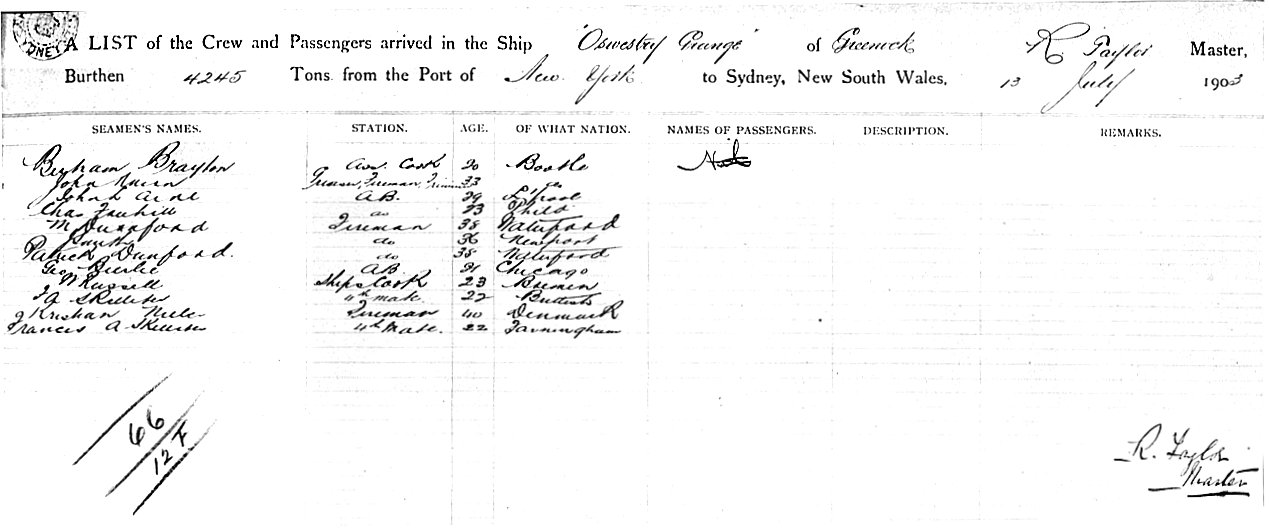 SYDNEY
A LIST of the Crew and Passengers arrived in the Ship "Oswestry Grange" of Greenock R Taylor Master,
Burthen 4245 Tons from the Port of New York to Sydney, New South Wales, 13 July 1903
SEAMEN'S NAMES. STATION. AGE. OF WHAT NATION. NAMES OF PASSENGERS. DESCRIPTION. REMARKS.
Bertram Brayton Ass. Cook 20 Bootle Nil
John Greaser, Fireman, Trimmer 33 do
John A.B. 29 L'pool
Chas 23 Phila
M Dunford Fireman 38 Waterford
Smith do 36 Newport
Patrick Dunford. do 38 Waterford
Geo A.B. 21 Chicago
W Russell Ships Cook 23 Bremen
F A Skelliter 4th mate. 22 British
Kristian Niels Fireman 40 Denmark
Francis A Skelliter 4th Mate. 22 Farningham
66
12 F
R. Taylor
Master